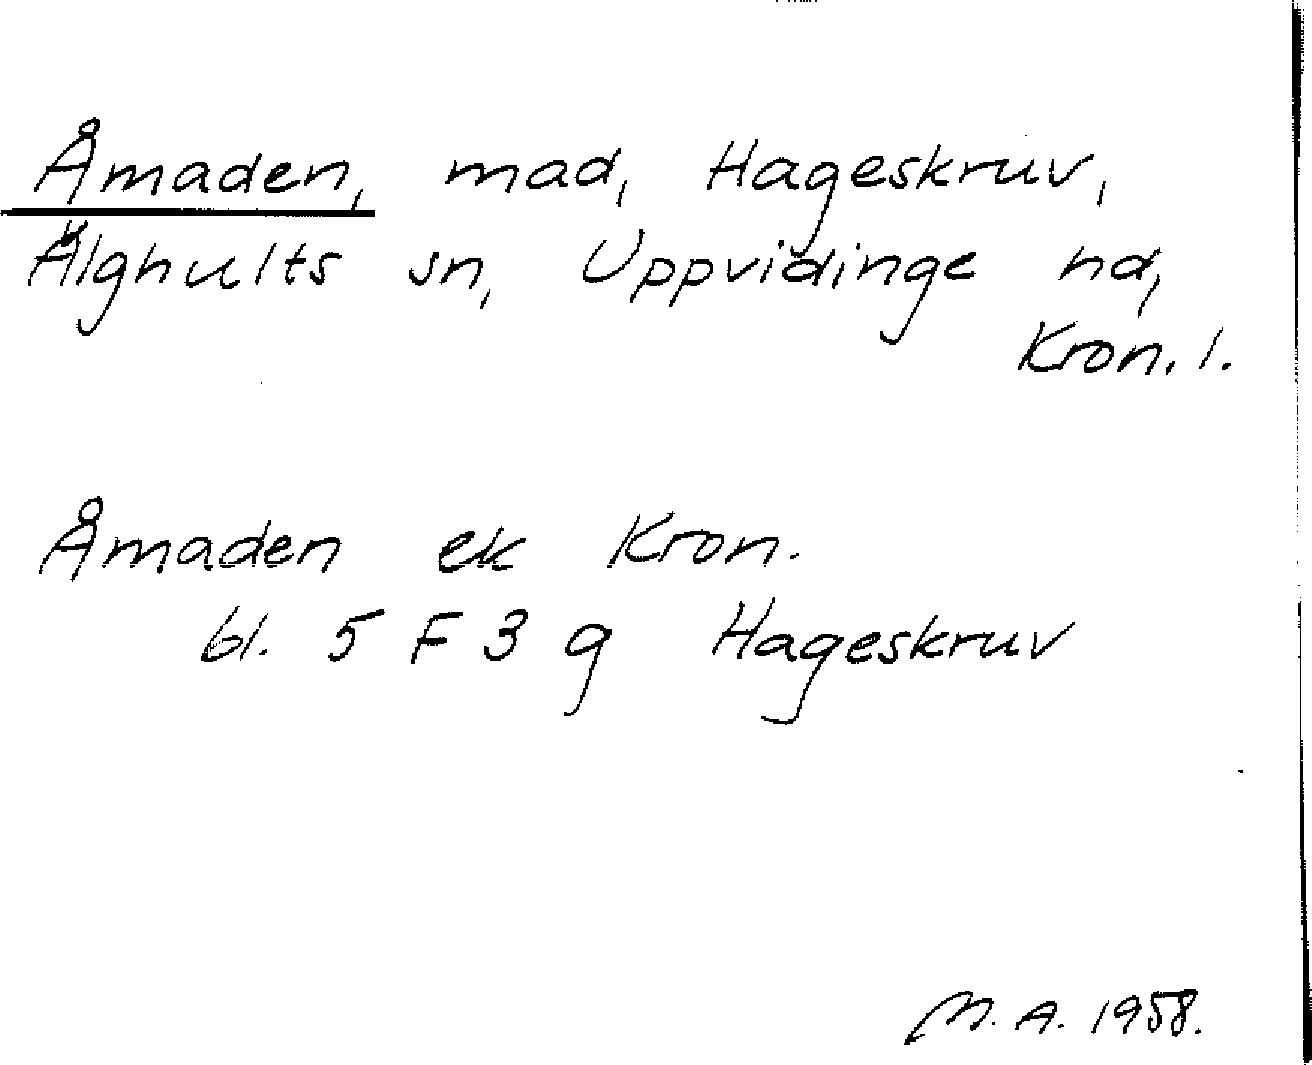 Åmaden, mad, Hageskruv,
Älghults sn, Uppvidinge hd,
Kron. l.
Åmaden ek Kron.
bl. 5 F 3 g Hageskruv
M. A. 1958.